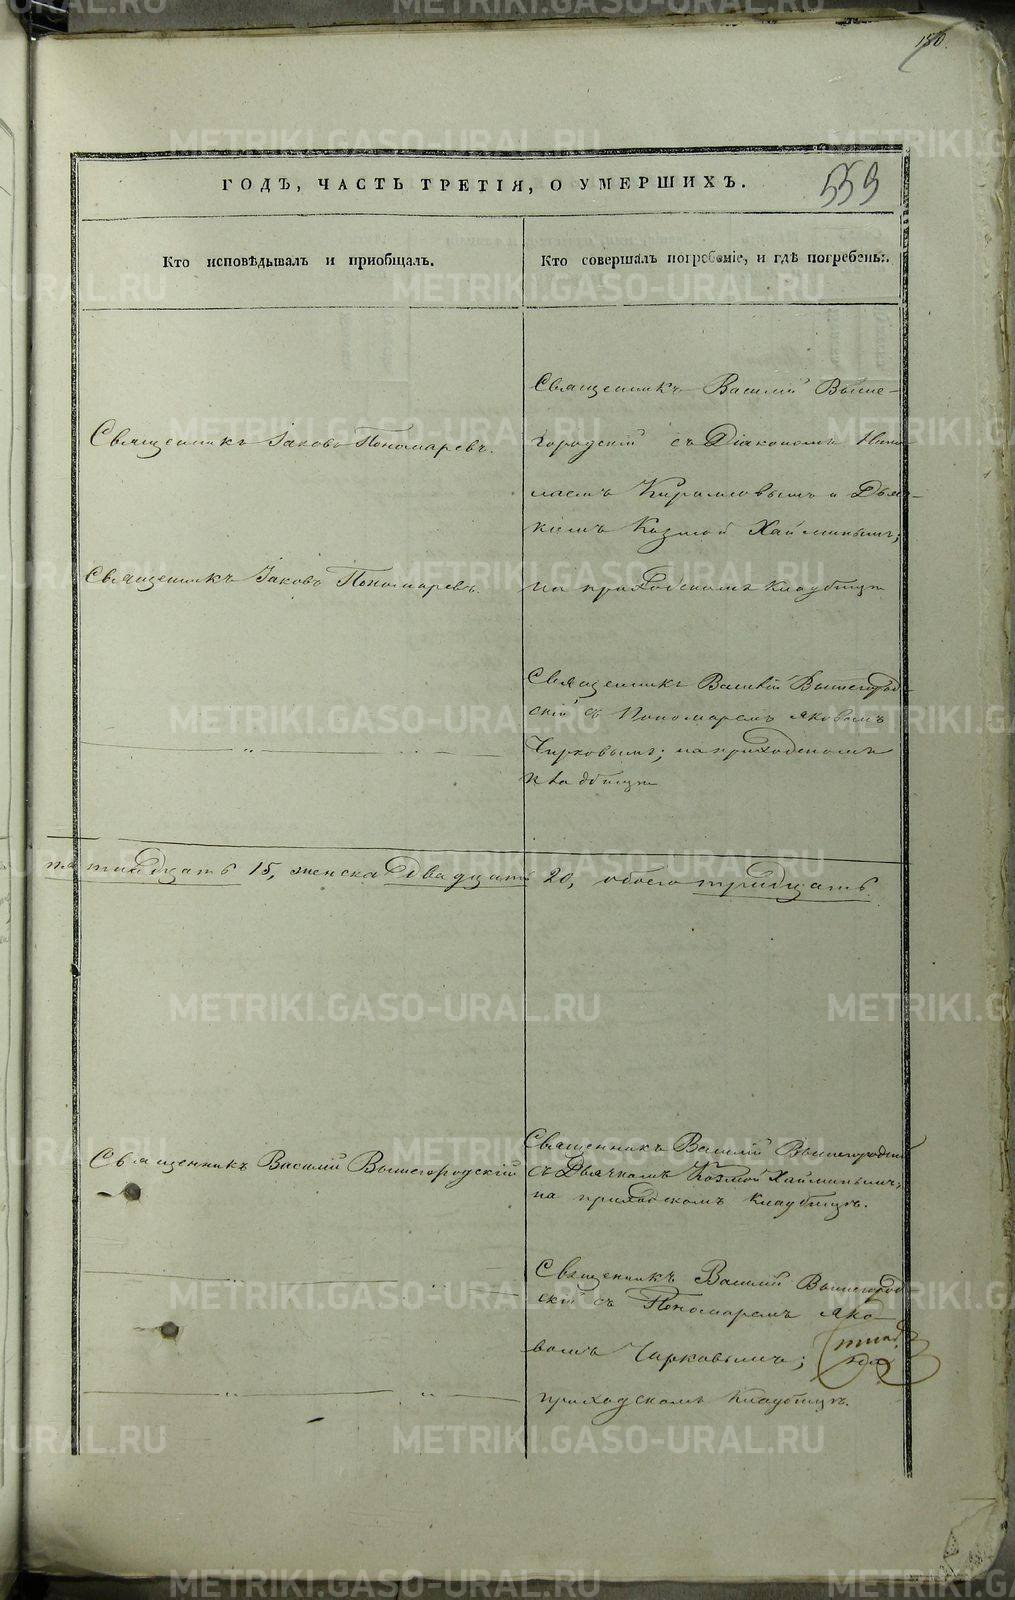 150.
559
ГОДЪ, ЧАСТЬ ТРЕТІЯ, О УМЕРШИХЪ.
Кто исповѣдывалъ и приобщалъ.
Кто совершалъ погребеніе, и гдѣ погребены.
Священникъ Іаковъ Пономаревъ.
Священникъ Іаковъ Пономаревъ.
Священникъ Василій Выше-
городскій съ Діакономъ Нико
лаемъ Кириловымъ и Дьяч-
комъ Козмой Хайминымъ;
на приходскомъ кладбищѣ
Священникъ Василій Вышегород-
скій съ Пономаремъ Яковомъ
Чирковымъ; на приходскомъ
кладбищѣ
пятнадцать 15, женска двадцать 20, обоего тридцать
Священникъ Василій Вышегородскій
Священникъ Василій Вышегородскій
съ Дьячкомъ Козмой Хайминымъ,
на приходскомъ кладбищѣ.
Священникъ Василій Вышегород
скій съ Пономаремъ Яко-
вомъ Чирковымъ;
приходскомъ кладбищѣ.
METRIKI.GASO-URAL.RU